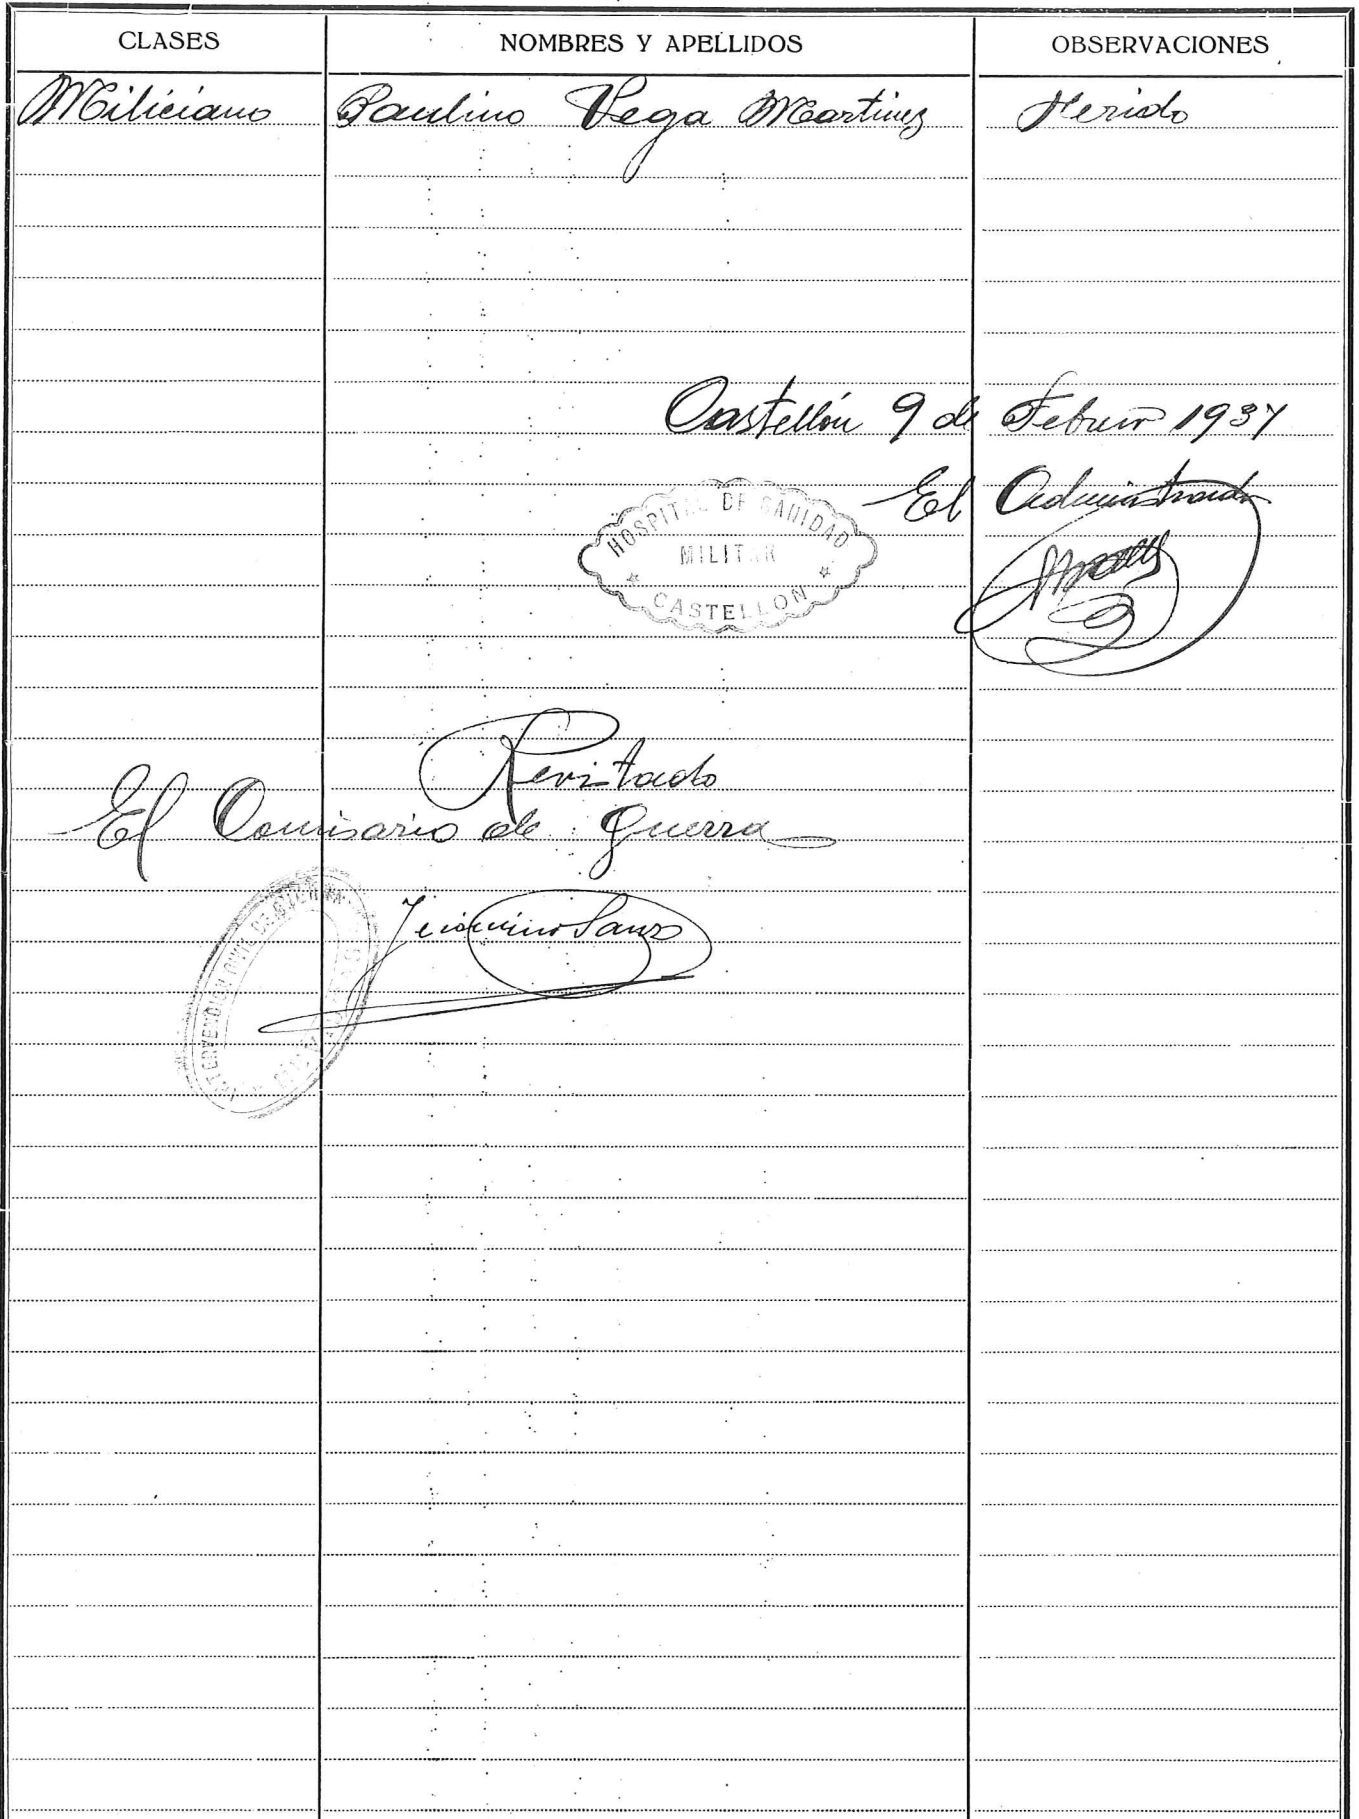 CLASES NOMBRES Y APELLIDOS OBSERVACIONES
Miliciano Paulino Vega Martinez Herido
Castellón 9 de Febrero 1937
El Administrador
HOSPITAL DE SANIDAD
MILITAR
CASTELLON
Revistado
El Comisario de Guerra
Jeronimo Sanz
INTERVENCION CIVIL DE GUERRA